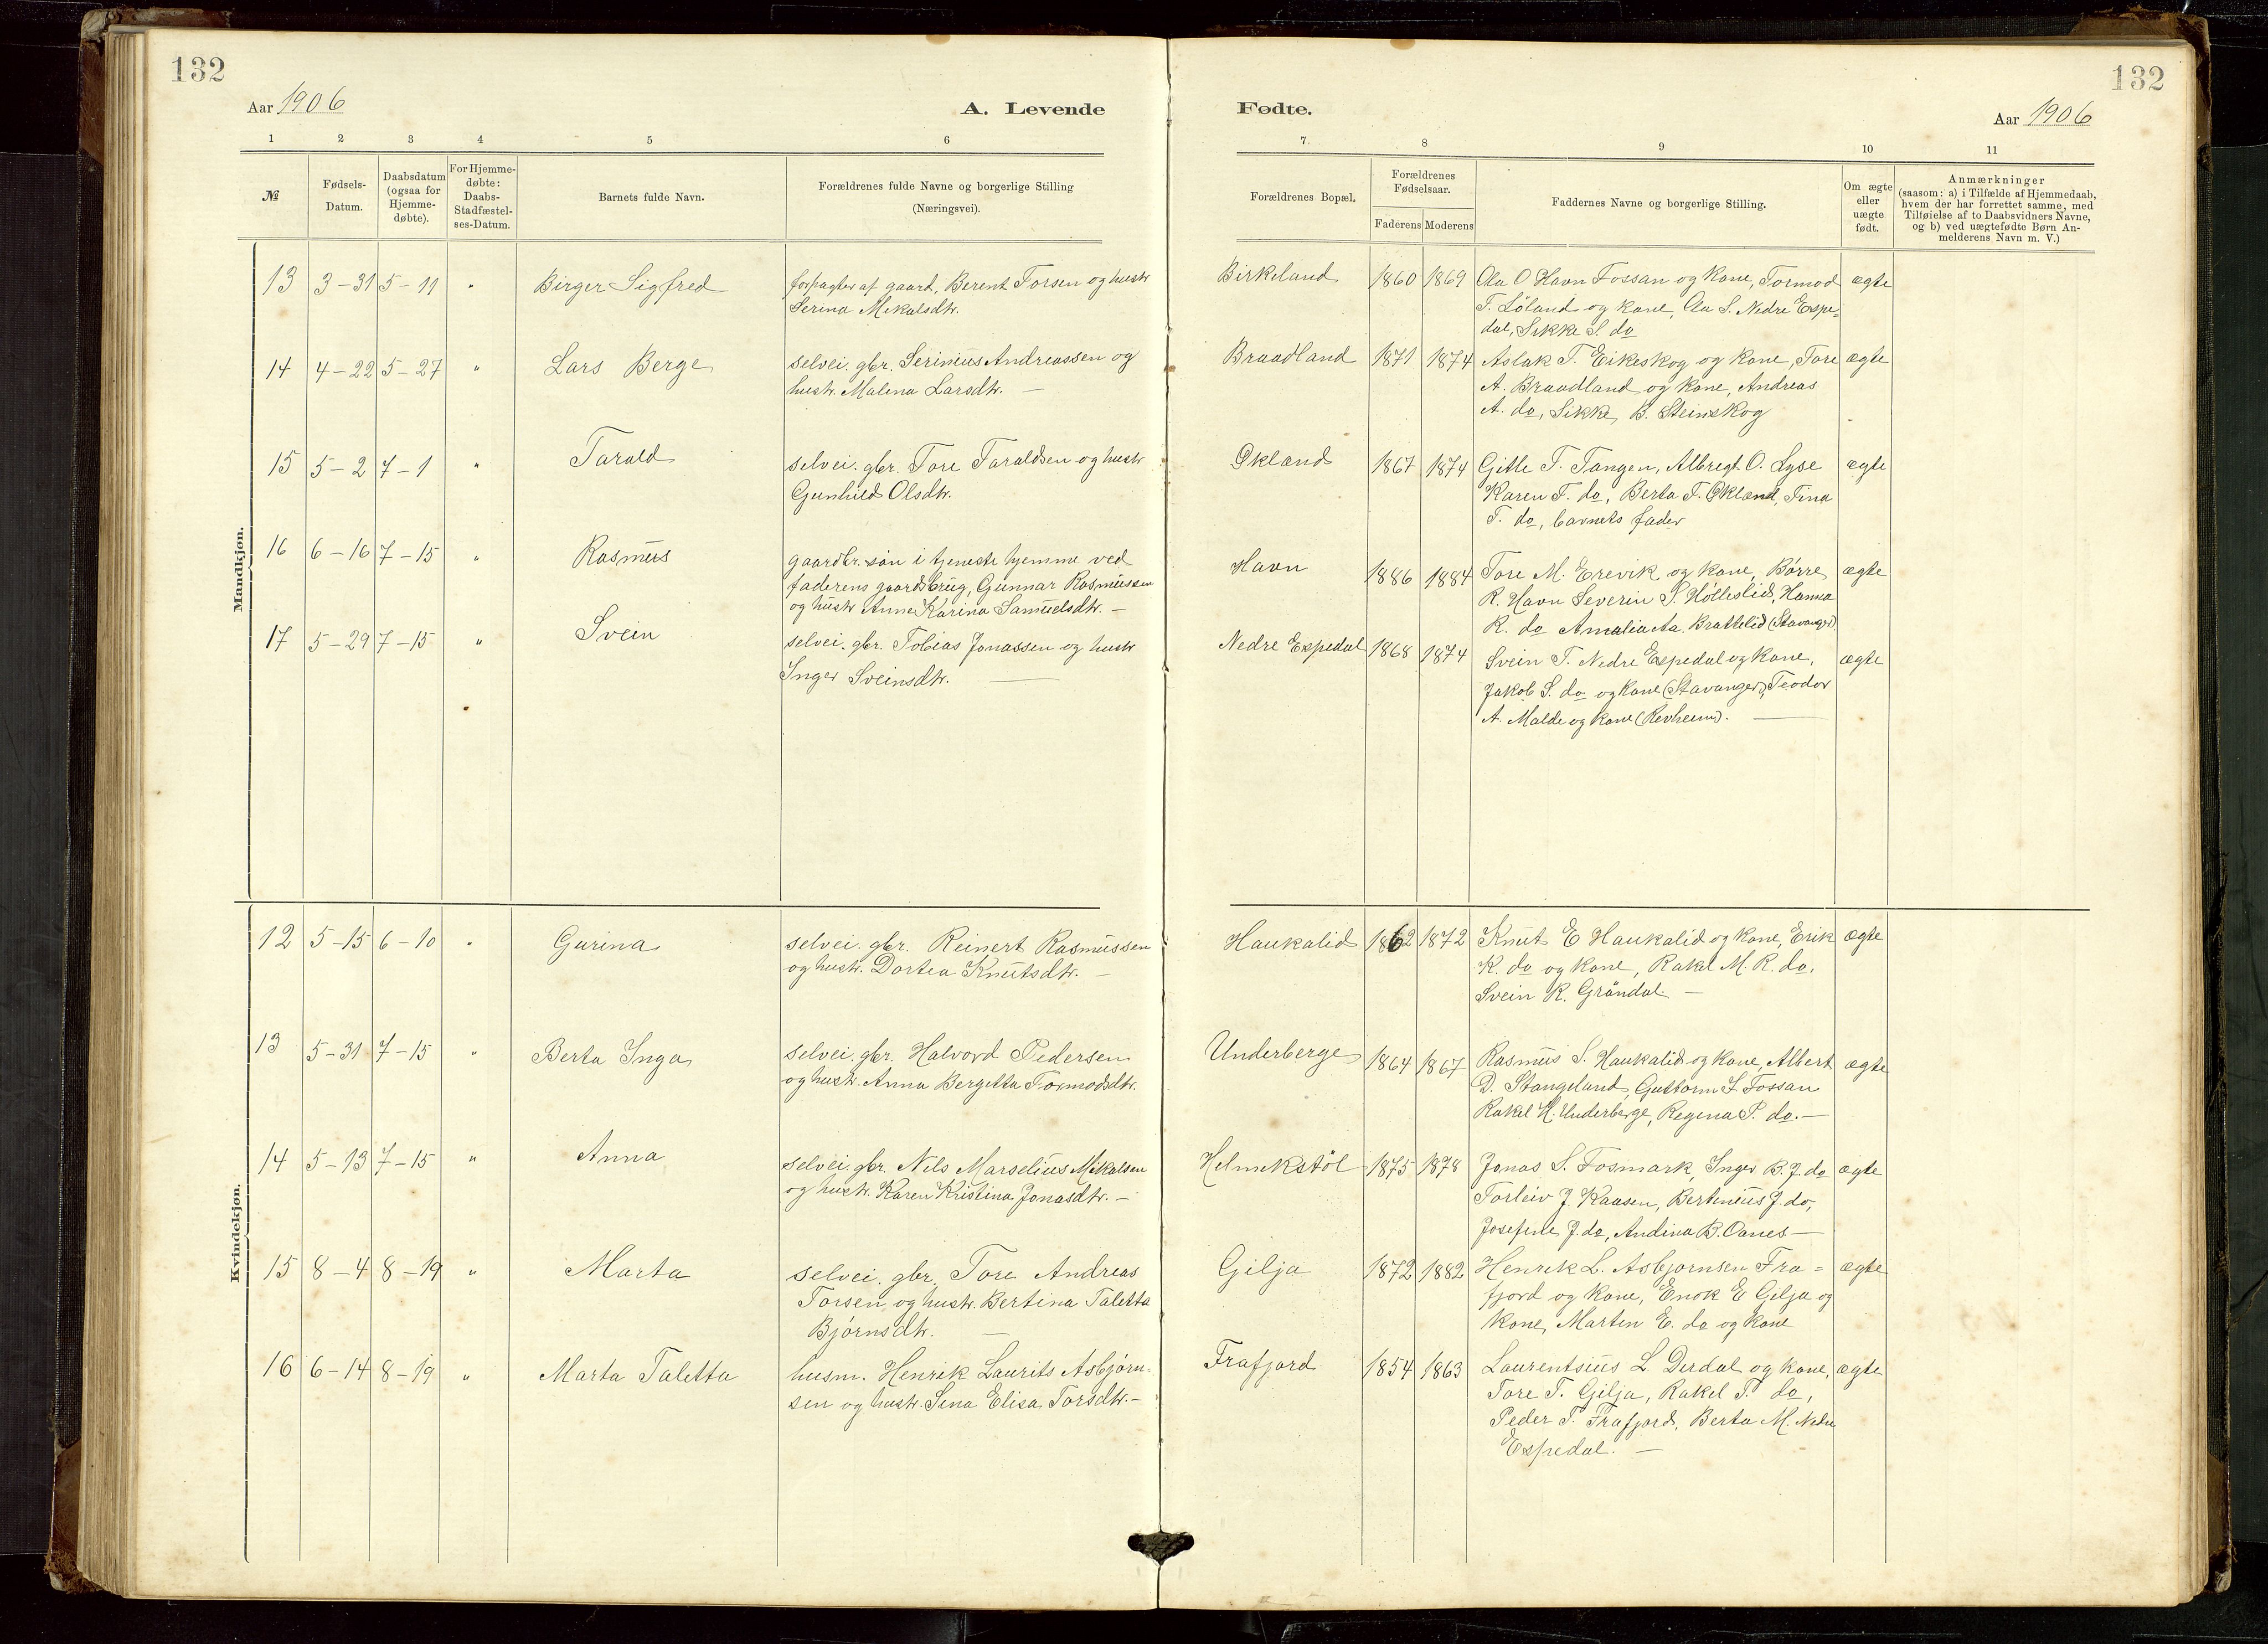 132
132
Aar 1906
A. Levende
Fødte.
Aar 1906
1 2 3 4 5 6 7. 8 9 10 11
№
Fødsels-
Datum.
Daabsdatum
(ogsaa for
Hjemme-
døbte).
For Hjemme-
døbte:
Daabs-
Stadfæstel-
ses-Datum.
Barnets fulde Navn.
Forældrenes fulde Navne og borgerlige Stilling
(Næringsvei).
Forældrenes Bopæl.
Forældrenes
Fødselsaar.
Faderens Moderens
Faddernes Navne og borgerlige Stilling.
Om ægte
eller
uægte
født.
Anmærkninger
(saasom: a) i Tilfælde af Hjemmedaab,
hvem der har forrettet samme, med
Tilføielse af to Daabsvidners Navne,
og b) ved uægtefødte Børn An-
melderens Navn m. V.)
Mandkjøn.
13 3-31 5-11 " Birger Sigfred
forpagter af gaard, Berent Torsen og hustr
Serina Mikalsdtr.
Birkeland 1860 1869
Aa O Havn Fossan og kone, Tormod
T. Löland og kone, Aa S. Nedre Espe=
dal, Sikke S. do
ægte
14 4-22 5-27 " Lars Berge
selvei. gbr. Serinius Andreassen og
hustr. Malena Larsdtr. —
Braadland 1871 1874
Aslak T. Eikeskog og kone, Tore
A. Braadland og kone, Andreas
A. do, Sikke B. Steinskog
ægte
15 5-2 7-1 " Tarald
selvei. gbr. Tore Taraldsen og hustr
Gunhild Olsdtr.
Økland 1867 1874
Gitle T. Tangen, Albregt O. Lyse
Karen T. do, Berta T. Økland, Tina
T. do, barnets fader
ægte
16 6-16 7-15 " Rasmus
gaardbr. søn i tjeneste hjemme ved
faderens gaardsbrug, Gunnar Rasmussen
og hustr Anne Karina Samuelsdtr. —
Havn 1886 1884
Tore M. Erevik og kone, Børre
R. Havn Severin S. Hölleslid, Hanna
R. do Amalia Aa. Brattelid (Stavanger).
ægte
17 5-29 7-15 " Svein
selvei. gbr. Tobias Jonassen og hustr
Inger Sveinsdtr. —
Nedre Espedal 1868 1874
Svein T. Nedre Espedal og kone,
Jakob S. do og kone (Stavanger), Teodor
A. Malde og kone (Revheim). —
ægte
Kvindekjøn.
12 5-15 6-10 " Gurina
selvei. gbr. Reinert Rasmussen
og hustr. Dortea Knutsdtr. —
Haukalid 1862 1872
Knut E Haukalid og kone, Erik
K. do og kone, Rakel M. R. do.
Svein K. Gröndal. —
ægte
13 5-31 7-15 " Berta Inga
selvei. gbr. Halvord Pedersen
og hustr. Anna Bergetta Tormodsdtr.
Underberge 1864 1867
Rasmus S. Haukalid og kone, Albert
D. Stangeland, Guttorm S. Fossan
Rakel H. Underberge, Regina P. do. —
ægte
14 5-13 7-15 " Anna
selvei. gbr. Nils Marselius Mikalsen
og hustr. Karen Kristina Jonasdtr. —
Helmikstöl 1875 1878
Jonas S. Fosmark, Inger B. J. do
Torleiv J. Kaasen, Bertinius J. do,
Josefine J. do, Andina B. Oanes —
ægte
15 8-4 8-19 " Marta
selvei. gbr. Tore Andreas
Torsen og hustr. Bertina Taletta
Bjørnsdtr. —
Gilja 1872 1882
Henrik L. Asbjørnsen Fra=
fjord og kone, Enok E Gilja og
kone, Marten E. do og kone
ægte
16 6-14 8-19 " Marta Taletta
husm. Henrik Laurits Asbjörn=
sen og hustr. Sina Elisa Torsdtr. —
Frafjord 1854 1863
Laurentsius L. Dirdal og kone,
Tore T. Gilja, Rakel T. do,
Peder T. Frafjord, Berta M. Nedre
Espedal. —
ægte